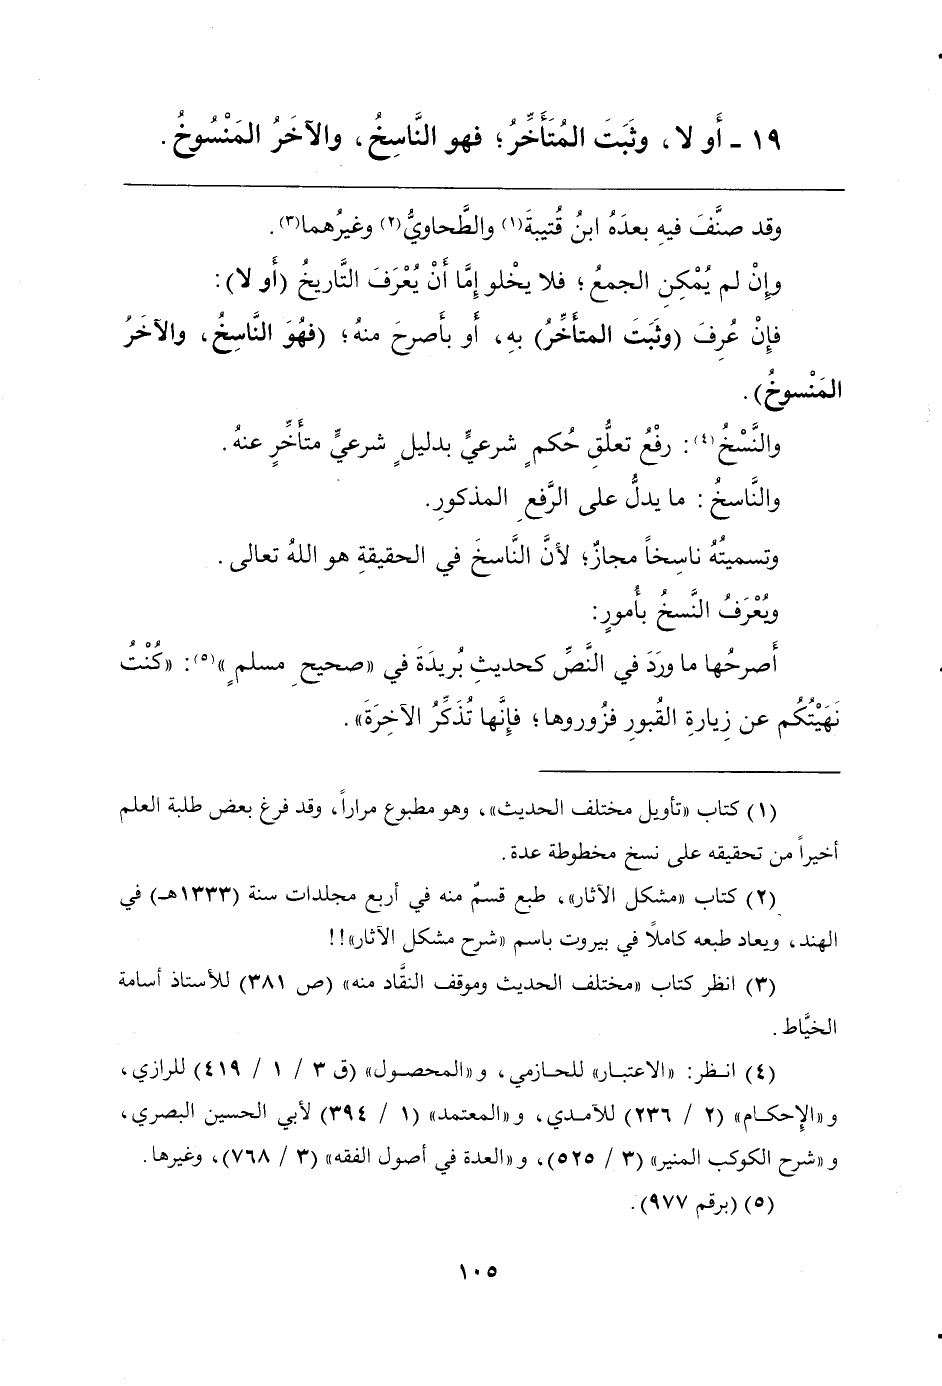 ١٩ - أَو لا، وثَبَتَ المُتَأَخِّرُ؛ فهو النَّاسِخُ، والآخَرُ المَنْسُوخُ.
وقد صنَّفَ فيهِ بعدَهُ ابنُ قُتيبةَ(١) والطَّحاويُّ(٢) وغيرُهما(٣).
وإِنْ لم يُمْكِنِ الجمعُ؛ فلا يخْلو إِمَّا أَنْ يُعْرَفَ التَّاريخُ (أَو لا):
فإِنْ عُرِفَ (وثَبَتَ المتأَخِّرُ) بهِ، أَو بأَصرحَ منهُ؛ (فهُوَ النَّاسِخُ، والآخَرُ
المَنْسوخُ).
والنَّسْخُ(٤): رفْعُ تعلُّقِ حُكمٍ شرعيٍّ بدليلٍ شرعيٍّ متأَخِّرٍ عنهُ.
والنَّاسخُ: ما يدلُّ على الرَّفعِ المذكورِ.
وتسميتُهُ ناسِخاً مجازٌ؛ لأنَّ النَّاسخَ في الحقيقةِ هو اللهُ تعالى.
ويُعْرَفُ النَّسخُ بأُمورٍ:
أَصرحُها ما ورَدَ في النَّصِّ كحديثِ بُريدَةَ في «صحيحِ مسلمٍ»(٥): «كُنْتُ
نَهَيْتُكُم عن زِيارةِ القُبورِ فزُوروها؛ فإِنَّها تُذَكِّرُ الآخِرَةَ».
(١) كتاب «تأويل مختلف الحديث»، وهو مطبوع مراراً، وقد فرغ بعض طلبة العلم
أخيراً من تحقيقه على نسخ مخطوطة عدة.
(٢) كتاب «مشكل الآثار»، طبع قسمٌ منه في أربع مجلدات سنة (١٣٣٣هـ) في
الهند، ويعاد طبعه كاملاً في بيروت باسم «شرح مشكل الآثار»!!
(٣) انظر كتاب «مختلف الحديث وموقف النقَّاد منه» (ص ٣٨١) للأستاذ أسامة
الخيَّاط.
(٤) انظر: «الاعتبار» للحازمي، و«المحصول» (ق ٣ / ١ / ٤١٩) للرازي،
و«الإحكام» (٢ / ٢٣٦) للآمدي، و«المعتمد» (١ / ٣٩٤) لأبي الحسين البصري،
و«شرح الكوكب المنير» (٣ / ٥٢٥)، و«العدة في أصول الفقه» (٣ / ٧٦٨)، وغيرها.
(٥) (برقم ٩٧٧).
١٠٥